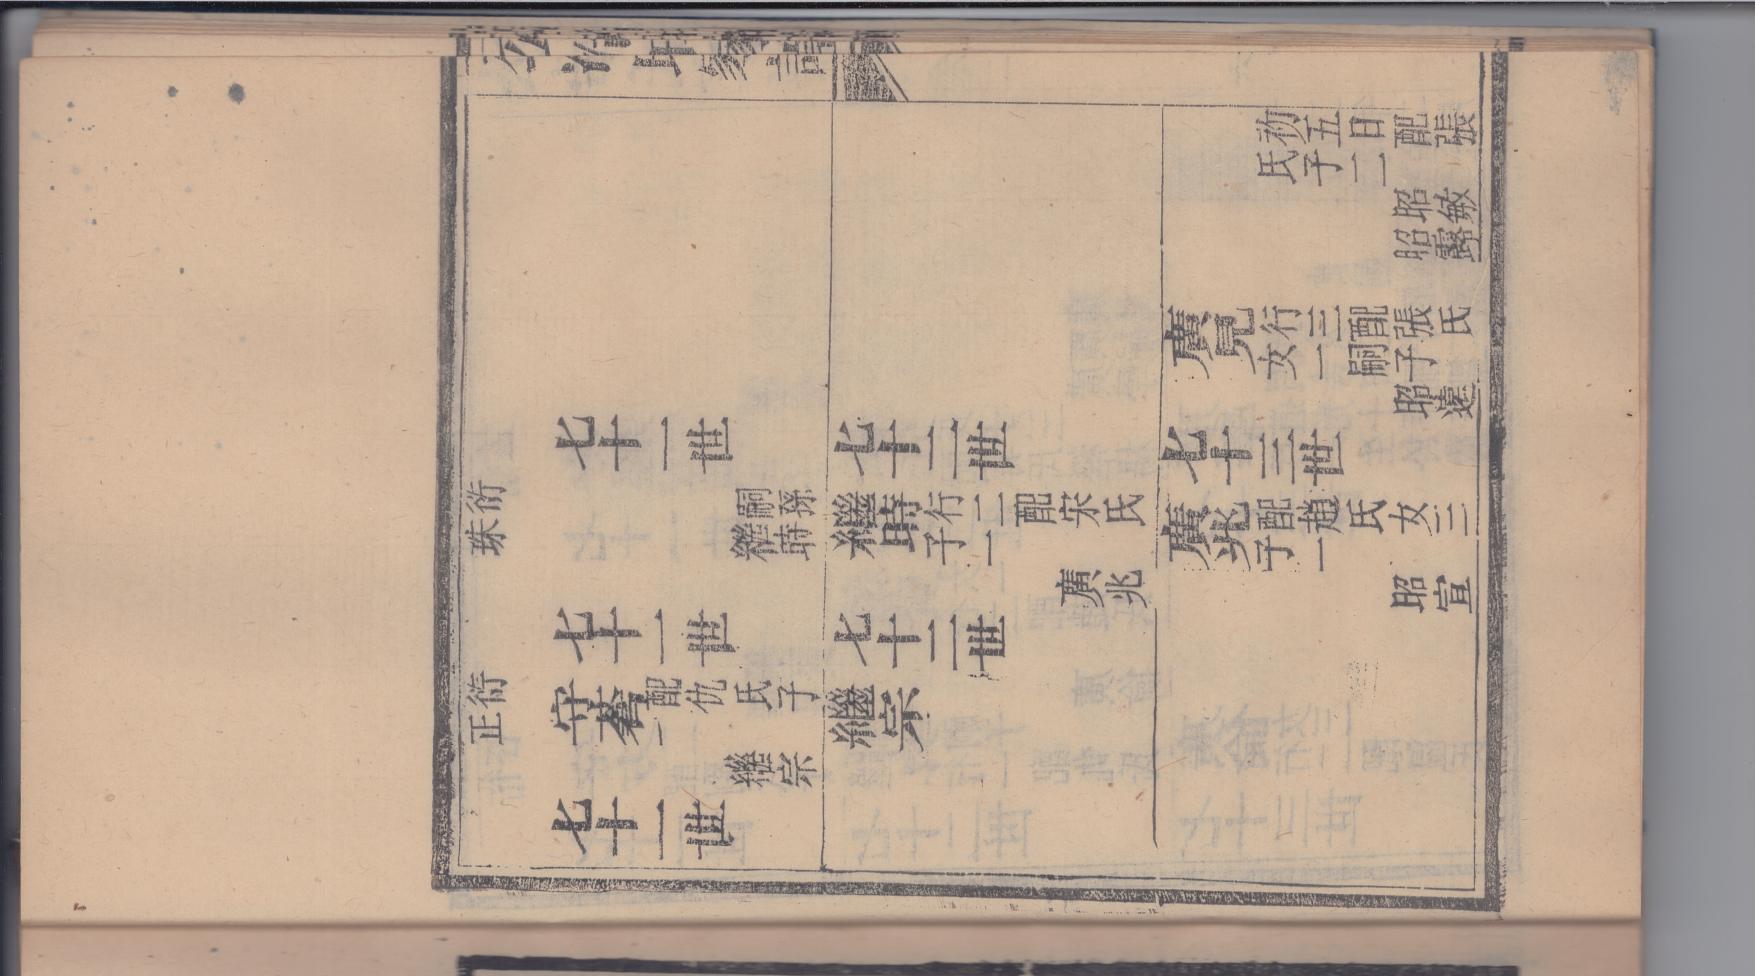 七十一世
衍珠
嗣孫
繼時
七十一世
衍正
守
配仇氏子
一
繼宗
七十一世
七十二世
繼時
行二配宋氏
子一
廣兆
七十二世
繼宗
初五日配張
氏子二
昭敏
昭露
廣兄
行三配張氏
女一嗣子
昭遠
七十三世
廣兆
配趙氏女三
子一
昭宣